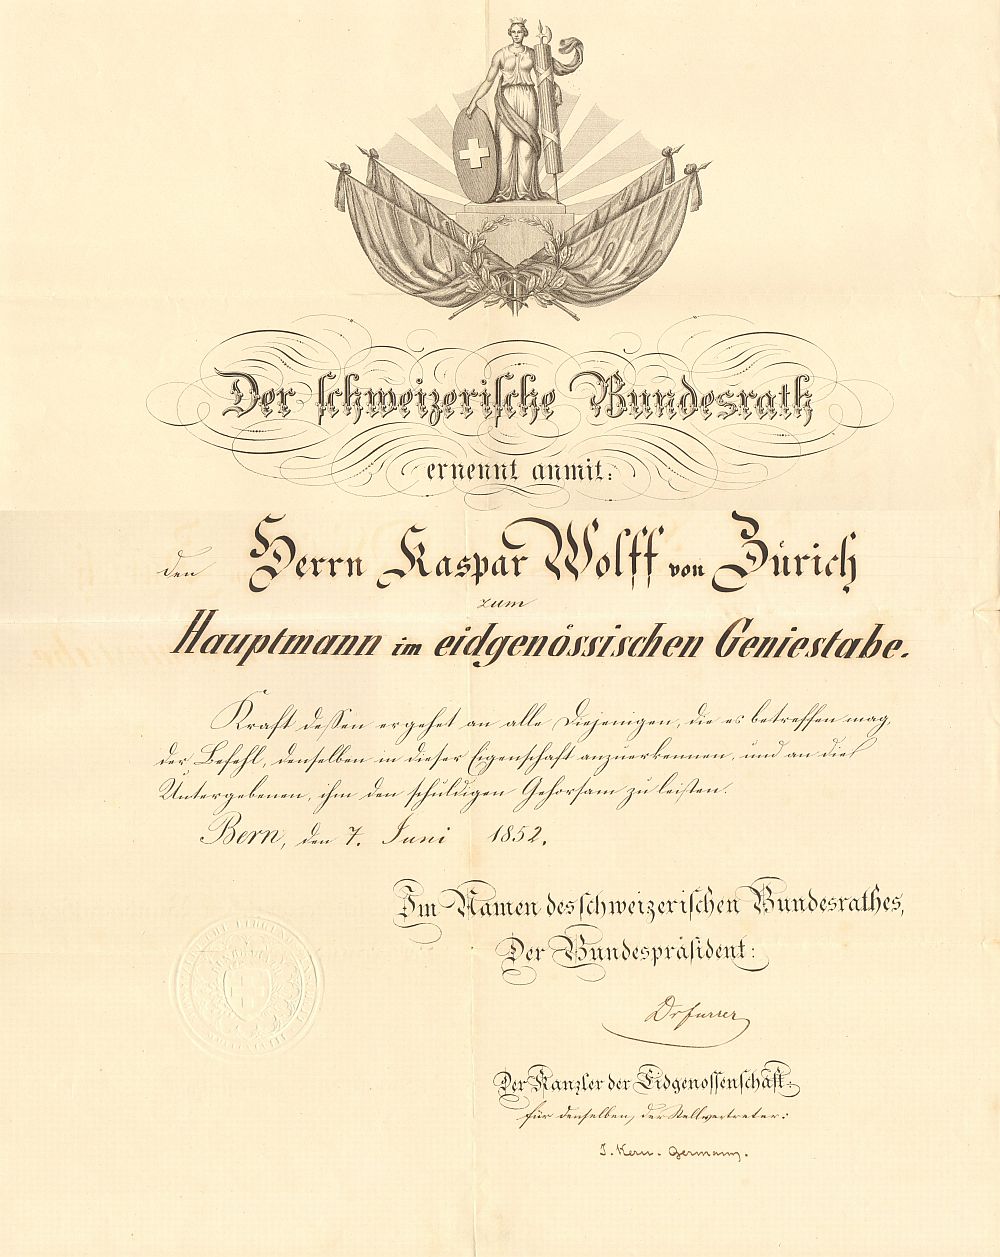 Der schweizerische Bundesrath
ernennt anmit:
den Herrn Kaspar Wolff von Zürich
zum
Hauptmann im eidgenössischen Geniestabe.
Kraft dessen ergehet an alle Diejenigen, die es betreffen mag,
der Befehl, denselben in dieser Eigenschaft anzuerkennen, und an die
Untergebenen, ihm den schuldigen Gehorsam zu leisten.
Bern, den 7. Juni 1852.
Im Namen des schweizerischen Bundesrathes,
Der Bundespräsident:
Dr Furrer
Der Kanzler der Eidgenossenschaft:
für denselben, der Stellvertreter:
J. Kern-Germann.